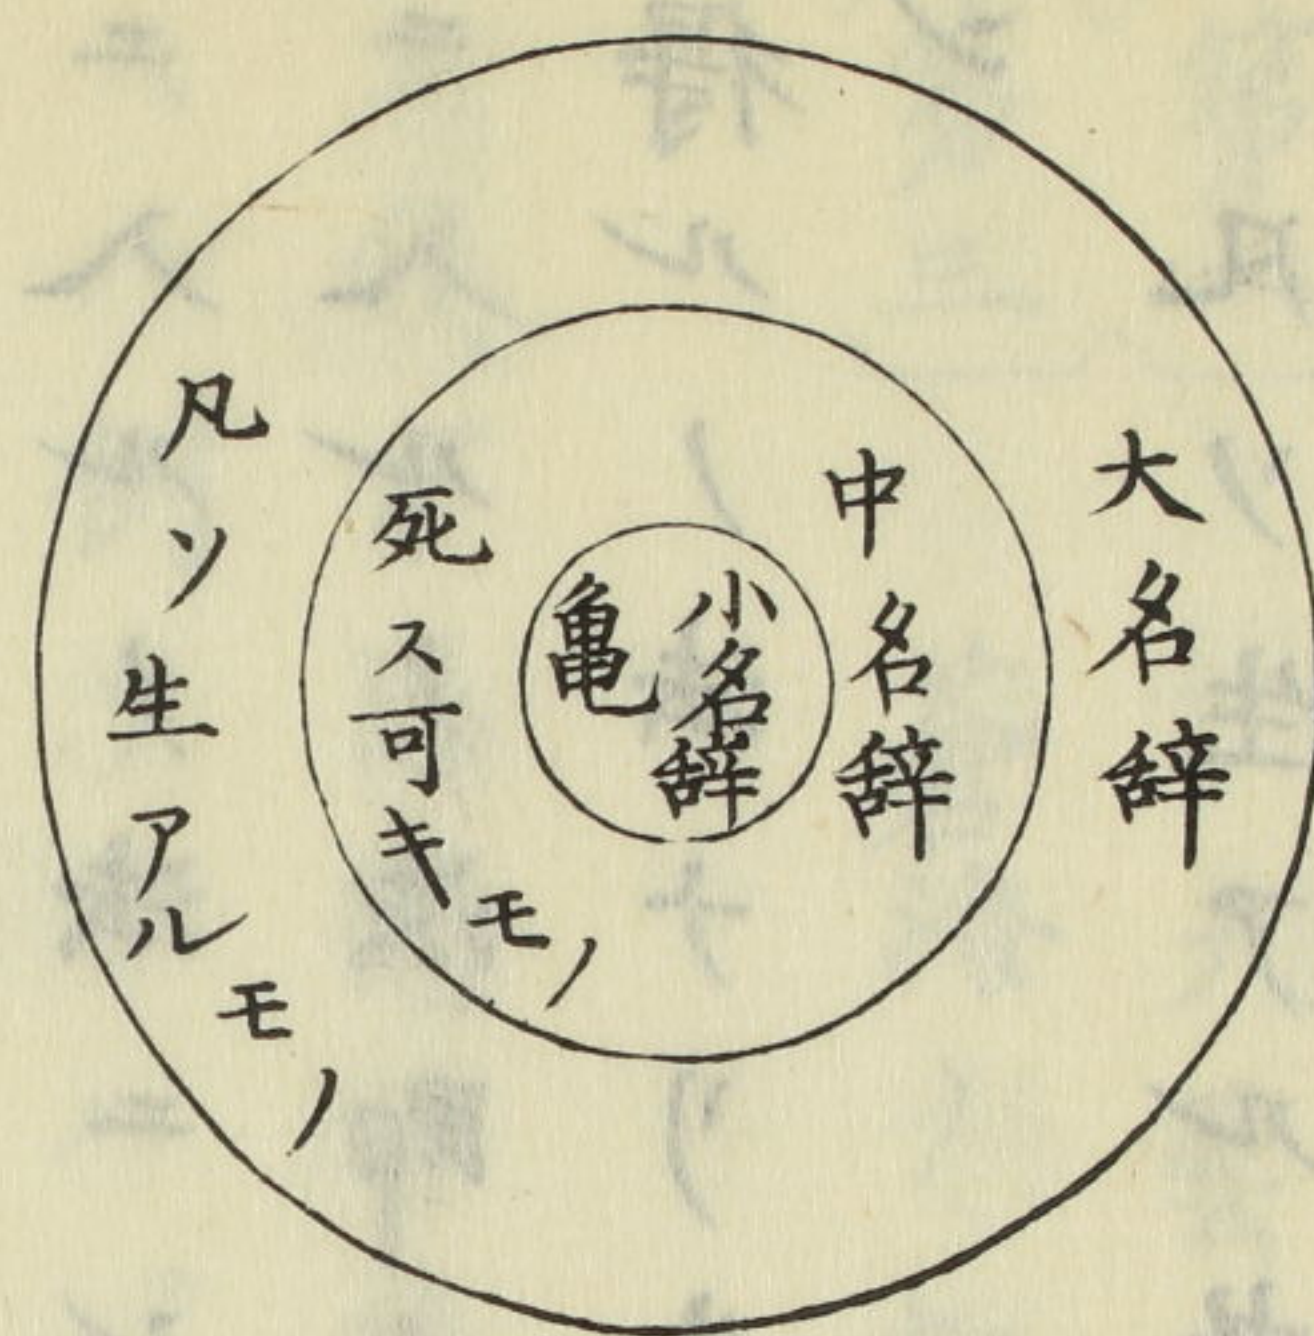 大名辞
中名辞
小名辞
亀
死ス可キモノ
凡ソ生アルモノ